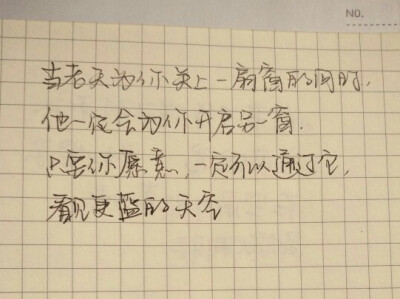 NO.
当老天为你关上一扇窗的同时,
他一定会为你开启另一窗.
只要你愿意,一定可以通过它,
看见更蓝的天空